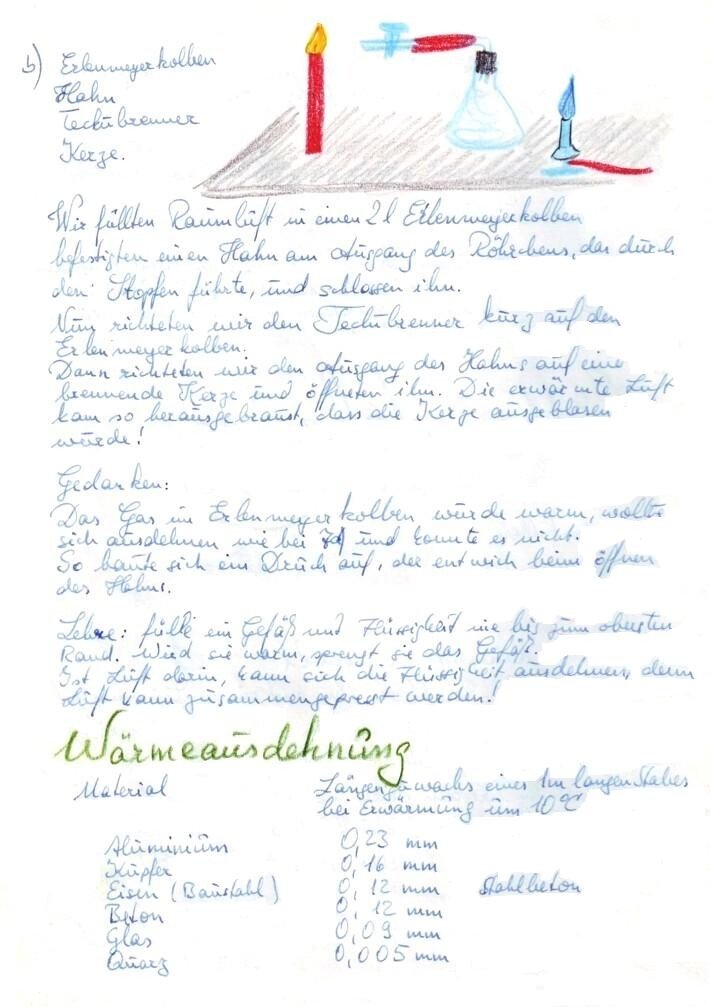 b) Erlenmeyerkolben
Hahn
Teclubrenner
Kerze.
Wir füllten Raumluft in einen 2 l Erlenmeyerkolben
befestigten einen Hahn am Ausgang des Röhrchens, das durch
den Stopfen führte, und schlossen ihn.
Nun richteten wir den Teclubrenner kurz auf den
Erlenmeyerkolben.
Dann richteten wir den Ausgang des Hahns auf eine
brennende Kerze und öffneten ihn. Die erwärmte Luft
kam so herausgebraust, dass die Kerze ausgeblasen
wurde!
Gedanken:
Das Gas im Erlenmeyerkolben wurde warm, wollte
sich ausdehnen wie bei und konnte es nicht.
So baute sich ein Druck auf, der entwich beim öffnen
des Hahns.
Lehre: fülle ein Gefäß und Flüssigkeit nie bis zum obersten
Rand. Wird sie warm, sprengt sie das Gefäß.
Ist Luft darin, kann sich die Flüssigkeit ausdehnen, denn
Luft kann zusammengepresst werden!
Wärmeausdehnung
Material Längenzuwachs eines 1m langen Stabes
bei Erwärmung um 10°C
Aluminium 0,23 mm
Kupfer 0,16 mm
Eisen (Baustahl) 0,12 mm Stahlbeton
Beton 0,12 mm
Glas 0,09 mm
Quarz 0,005 mm